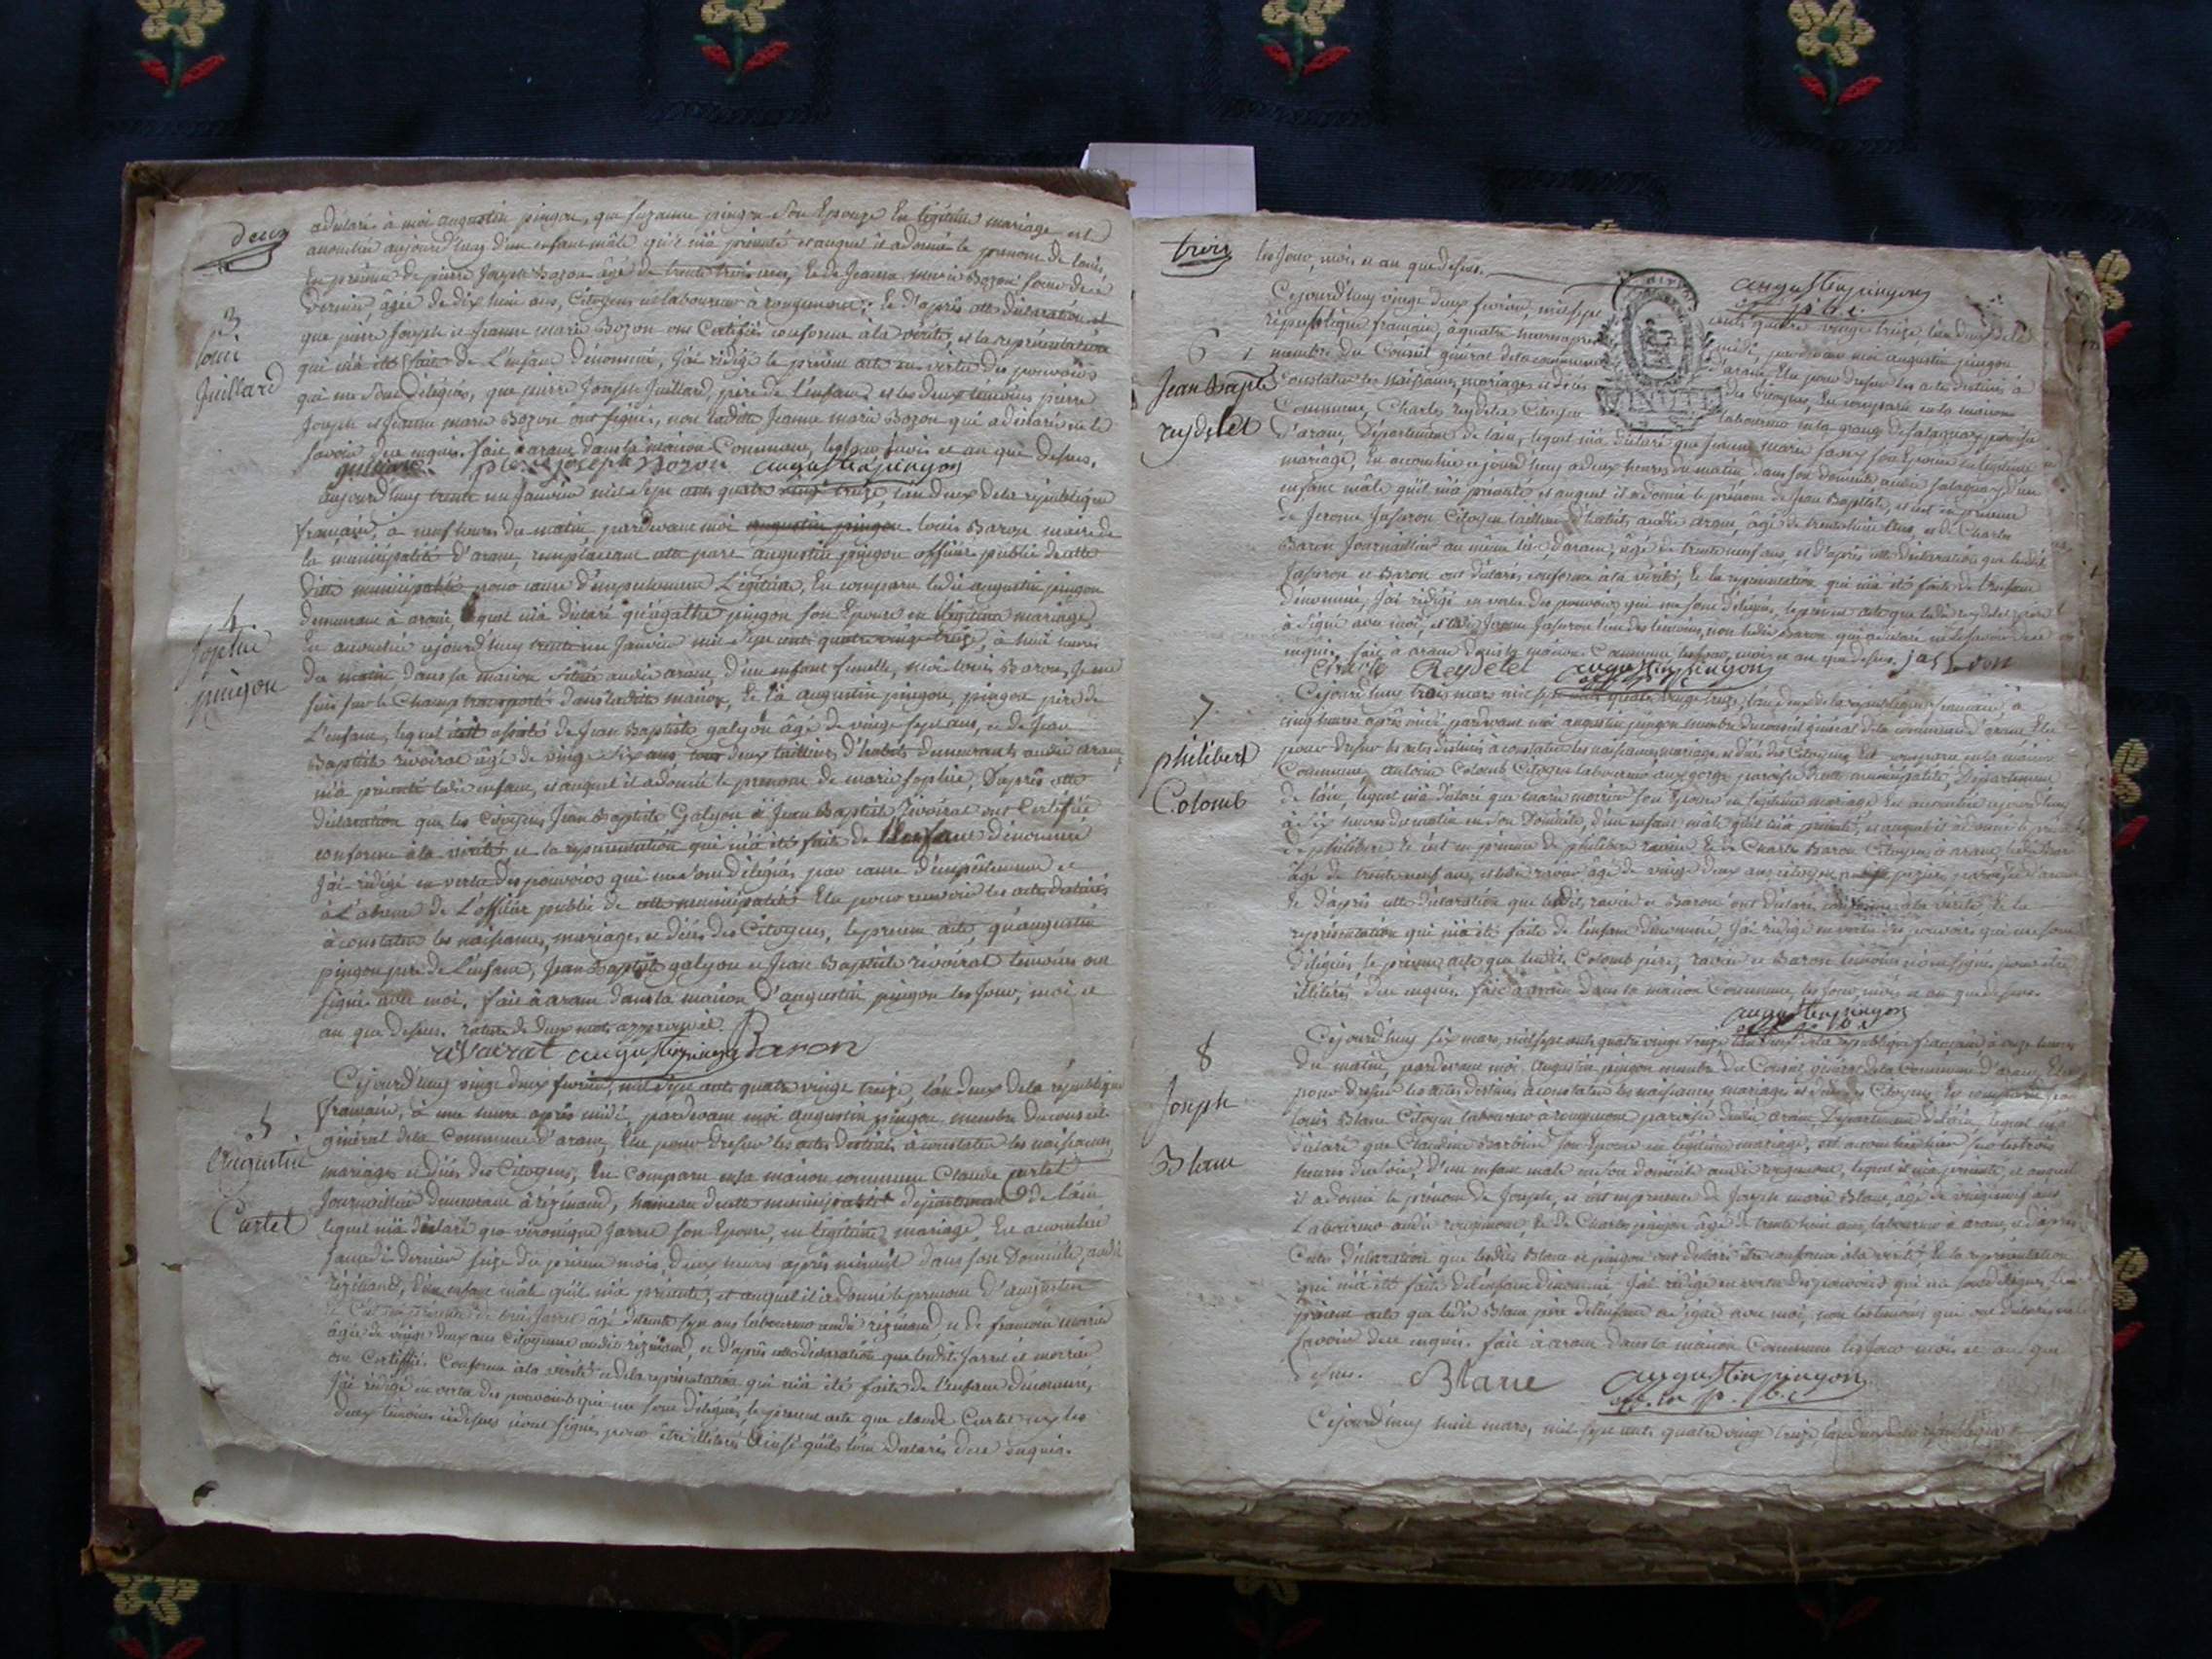 deux
a déclaré à moi augustin pingon, que suzanne pingon son Epouse En légitime mariage est
accouchée aujourd'huy d'un enfant mâle qu'il m'a présenté et auquel il a donné le prenom de louis,
En présence de pierre Joseph Bozon âgé de trente trois ans, Et de Jeanne marie Bozon soeur de ce
dernier, âgée de dix huit ans, Citoyens et laboureur à rougemont; Et d'après cette déclaration et
que pierre Joseph et Jeanne marie Bozon ont Certifiés conforme à la vérité, et la représentation
3
louis
Juillard
qui m'a été faite de L'enfant dénommé, J'ai rédigé le présent acte en vertu des pouvoirs
qui me sont délégués, que pierre Joseph Juillard, père de l'enfant et les deux témoins pierre
Joseph et Jeanne marie Bozon ont signés, non laditte Jeanne marie Bozon qui a déclaré ne le
savoir de ce enquis. fait à aranc dans la maison Commune, les Jour, mois et an que dessus.
pierre joseph Bozon augustin pingon
aujourd'huy trente un Janvier mil sept cents quatre vingt treize, l'an deux de la république
francaise, à neuf heures du matin pardevant moi augustin pingon louis Baron maire de
la municipalité d'aranc, remplacant cette part augustin pingon officier public de cette
ditte municipalité pour cause d'empechement Légitime, Est comparu ledit augustin pingon
demeurant à aranc, lequel m'a déclaré qu'agathe pingon son Epouse en légitime mariage,
4.
sophie
pingon
Est accouchée cejourd'huy trente un Janvier mil sept cents quatre vingt treize, à huit heures
du matin dans sa maison située audit aranc, d'un enfant femelle, moi louis Baron, Je me
suis sur le Champ transporté dans ladite maison, Et là augustin pingon, pingon père de
L'enfant, lequel était assisté de Jean Baptiste galyon âgé de vingt sept ans, et de Jean
Baptiste rivoirat âgé de vingt six ans, tous deux tailleurs d'habits demeurants audit aranc,
m'a présenté ledit enfant, et auquel il a donné le prenom de marie sophie, D'après cette
déclaration que les Citoyens Jean Baptiste Galyon et Jean Baptiste Rivoirat ont Certifiée
conforme à la vérité et la représentation qui m'a été faite de l'enfant dénommé
J'ai rédigé en vertu des pouvoirs qui me sont délégués par cause d'empêchement et
à L'absence de L'officier public de cette municipalité Elu pour recevoir les actes destinés
à constater les naissances, mariages et décès des Citoyens, le présent acte, qu'augustin
pingon père de L'enfant, Jean Baptiste galyon et Jean Baptiste rivoirat temoins ont
signé avec moi, fait à aranc dans la maison d'augustin pingon les Jour, mois et
an que dessus. rature de deux mots approuvée.
rivoirat augustin pingon Baron
5
augustin
Curtet
Cejourd'huy vingt deux fevrier, mil sept cents quatre vingt treize, l'an deux de la république
francaise, à une heure après midi, pardevant moi augustin pingon, membre du conseil
général de la Commune d'aranc, Elu pour dresser les actes destinés à constater les naissances
mariages et décès des Citoyens, Est Comparu en la maison commune Claude curtet
Journaillier demeurant à résinand, hameau de cette municipalité département de l'ain
lequel m'a déclaré que véronique Jarret son Epouse, en légitime mariage, Est accouchée
samedi dernier seize du présent mois, deux heures après minuit dans son Domicile, audit
résinand, d'un enfant mâle qu'il m'a présenté, et auquel il a donné le prenom d'augustin
laboureur audit résinand, et de francoise
âgée de vingt deux ans Citoyenne audit résinand, et d'après cette déclaration que lesdits Jarret et
ont Certiffié, Conforme à la vérité et de la représentation qui m'a été faite de l'enfant dénommé,
J'ai rédigé en vertu des pouvoirs qui me sont délégués, le présent acte que claude Curtet et les
deux témoins cidessus n'ont signés pour être illitérés ainsi qu'ils l'ont Déclarés de ce enquis.
trois
les Jour, mois et an que dessus.
augustin pingon
6
Jean Bapte
reydelet
Cejourd'huy vingt deux fevrier, mil sept cents quatre vingt treize, l'an deux de la
république francaise, à quatre heures après midi, pardevant moi augustin pingon
membre du Conseil général de la commune d'aranc, Elu pour dresser les actes destinés à
Constater les naissances, mariages et décès des Citoyens, Est comparu en la maison
Commune, Charles reydelet Citoyen laboureur en la grange de
d'aranc, Département de l'ain, lequel m'a déclaré que Jeanne marie son Epouse en légitime
mariage, Est accouchée cejourd'huy à deux heures du matin dans son domicile audit d'un
enfant mâle qu'il m'a présenté et auquel il a donné le prénom de Jean Baptiste, et ce en présence
de Jerome Citoyen tailleur d'habits audit aranc, âgé de trente huit ans, et de Charles
Baron Journaillier au même lieu d'aranc, âgé de trente neuf ans, et d'après cette déclaration que lesdits
et Baron ont déclarés conforme à la vérité, Et la représentation qui m'a été faite de l'enfant
dénommé, J'ai rédigé en vertu des pouvoirs qui me sont délégués, le présent acte que ledit reydelet père
à signé avec moi, et ledit Jerome l'un des témoins, non ledit Baron qui a déclaré ne le savoir de ce
enquis. fait à aranc dans la maison Commune les Jour, mois et an que dessus.
Charle Reydelet augustin pingon
7
philibert
Colomb
Cejourd'huy trois mars mil sept cents quatre vingt treize, l'an deux de la république francaise, à
cinq heures après midi pardevant moi augustin pingon membre du conseil général de la commune d'aranc Elu
pour dresser les actes destinés à constater les naissances, mariages et décès des Citoyens, Est comparu en la maison
Commune, antoine Colomb Citoyen laboureur paroisse de cette municipalité, Département
de l'ain, lequel m'a déclaré que marie son Epouse en légitime mariage Est accouchée cejourd'huy
à six heures du matin en son Domicile, d'un enfant mâle qu'il m'a présenté, et auquel il a donné le
de philibert Et ce en présence de philibert ravier Et de Charles Baron Citoyens à aranc,
âgé de trente neuf ans, et ledit ravier âgé de vingt deux ans
Et d'après cette déclaration que lesdits ravier et Baron ont déclaré conforme à la vérité Et la
représentation qui m'a été faite de l'enfant dénommé, J'ai rédigé en vertu des pouvoirs qui me sont
délégués, le présent acte que lesdits Colomb père, ravier et Baron témoins n'ont signés pour être
illitérés de ce enquis. fait à aranc dans la maison Commune, les Jour, mois et an que dessus.
augustin pingon
8
Joseph
Blanc
Cejourd'huy six mars, mil sept cents quatre vingt treize l'an deux de la république francaise à onze heures
du matin, pardevant moi augustin pingon membre du Conseil général de la Commune d'aranc Elu
pour dresser les actes destinés à constater les naissances mariages et décès des Citoyens, Est comparu
louis Blanc Citoyen laboureur à rougemont paroisse dudit aranc, Département de l'ain, lequel m'a
déclaré que Claudine son Epouse en légitime mariage, est accouchée hier
heures du soir, D'un enfant mâle en son domicile audit rougemont, lequel il m'a présenté, et auquel
il a donné le prénom de Joseph, et ce en présence de Joseph marie Blanc, âgé de vingt neuf ans
Laboureur audit rougemont, Et de Charles pingon âgé de trente huit ans, laboureur à aranc, et d'après
Cette déclaration que lesdits Blanc et pingon ont déclaré être conforme à la vérité, Et la représentation
qui m'a été faite de l'enfant dénommé J'ai rédigé en vertu des pouvoirs qui me sont délégués, le
présent acte que ledit Blanc père de l'enfant a signé avec moi, non les témoins qui ont déclaré ne le
savoir de ce enquis. fait à aranc dans la maison Commune les Jour mois et an que
dessus. Blanc augustin pingon
Cejourd'huy huit mars, mil sept cents quatre vingt treize, l'an deux de la république